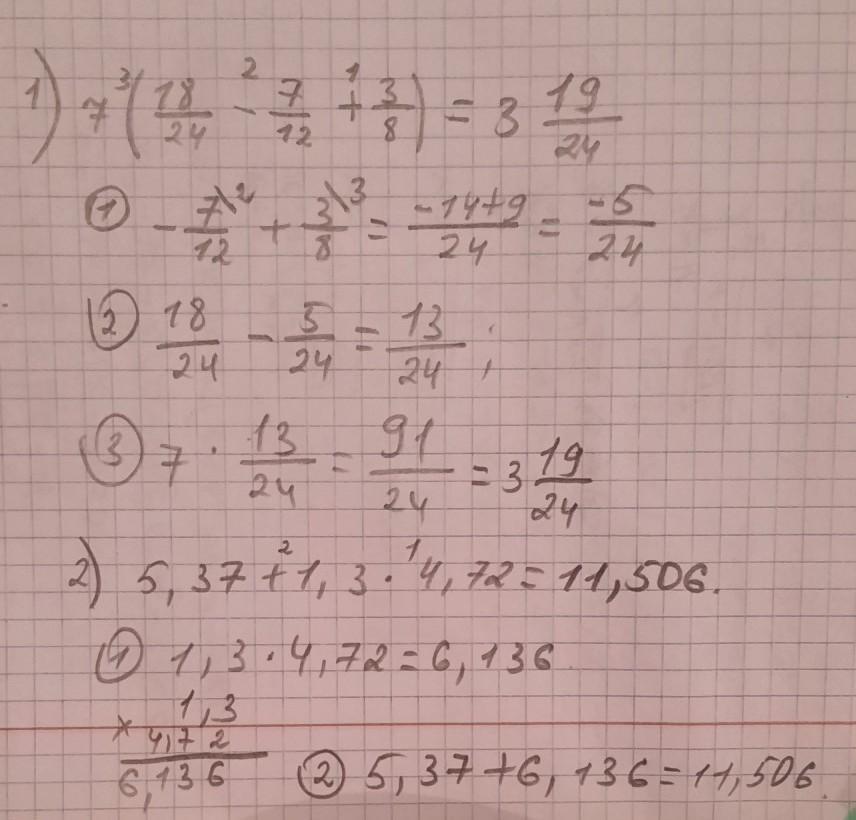 1) 7 ³( 18/24 ²- 7/12 ¹+ 3/8 ) = 3 19/24
① - 7\2/12 + 3\3/8 = -14+9/24 = -5/24
② 18/24 - 5/24 = 13/24 ;
③ 7 · 13/24 = 91/24 = 3 19/24
2) 5,37 ²+ 1,3 ·¹ 4,72 = 11,506.
① 1,3 · 4,72 = 6,136
1,3
× 4,72
6,136 ② 5,37 + 6,136 = 11,506.